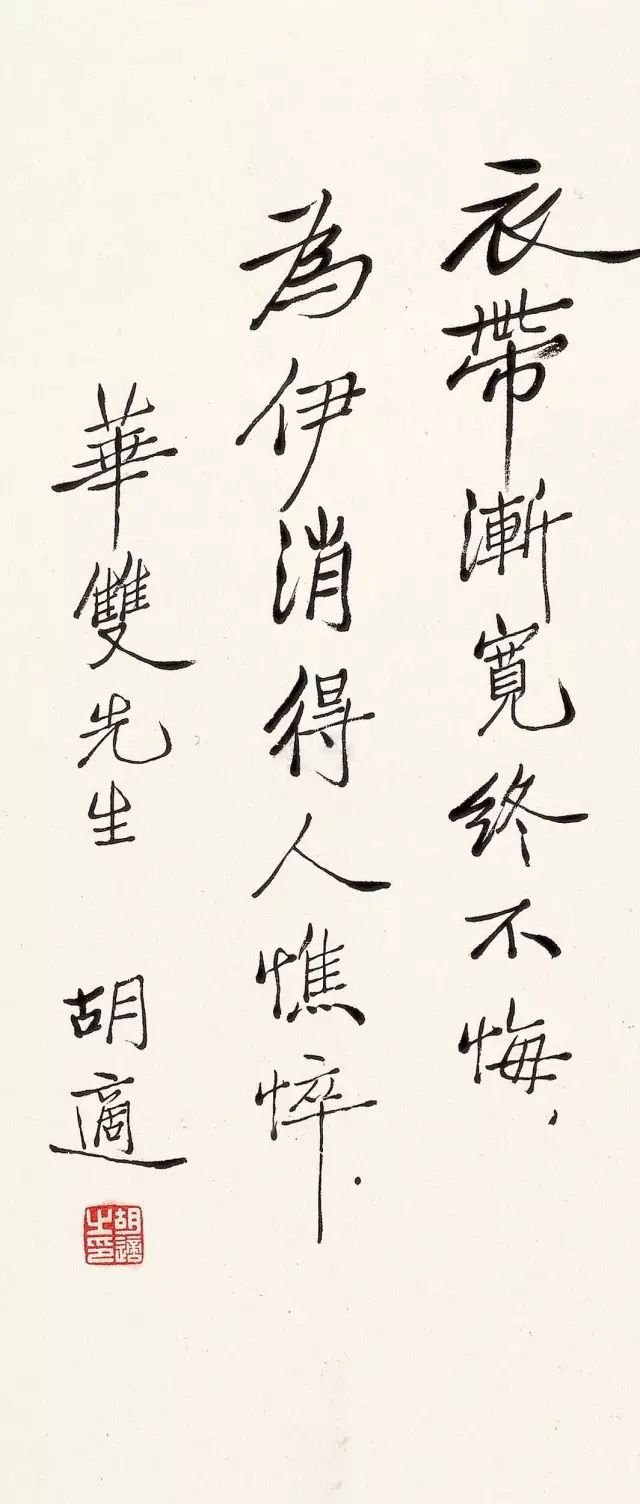 衣帶漸寬終不悔，
為伊消得人憔悴．
華雙先生 胡適
胡適之印